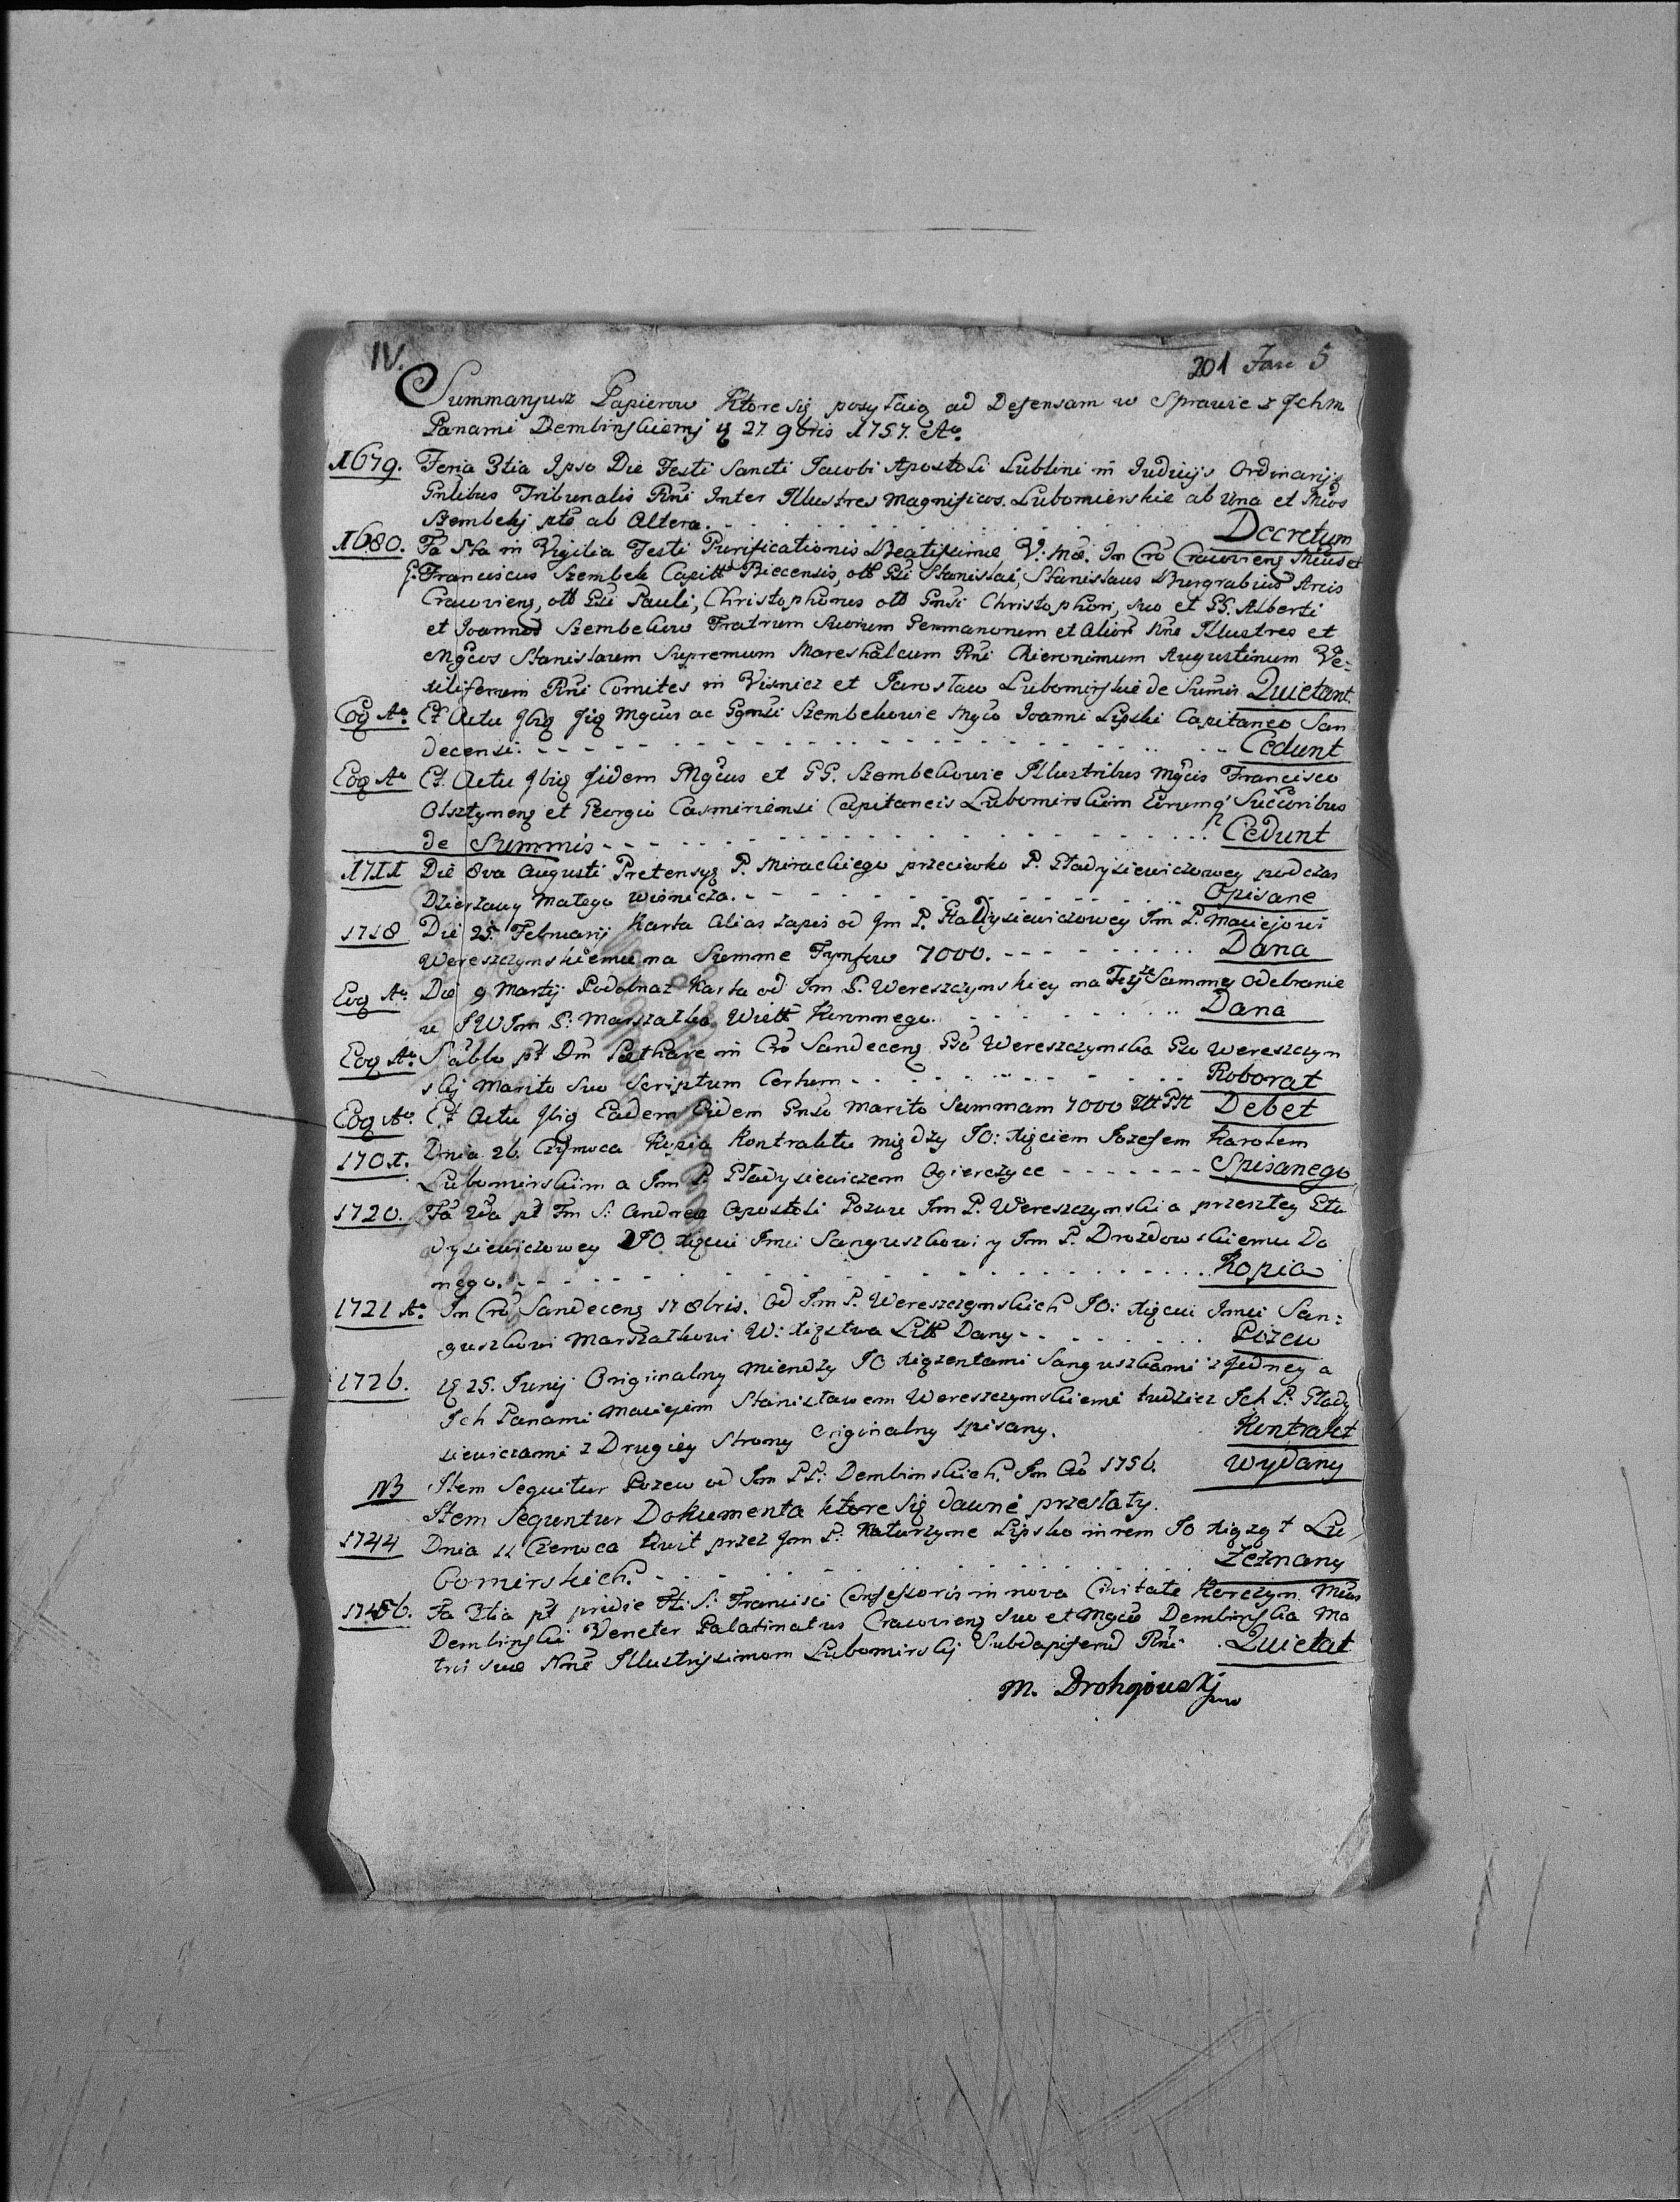 IV.
201 Fasc 5
Summaryusz Papierow Ktore się posyłaią ad Defensam w Sprawie z Jchm
Panami Dembinskiemj 27. 9bris 1757. Ao.
1679. Feria 3tia Ipso Die Festi Sancti Jacobi Apostoli Lublini in Iudicijs Ordinarijs
Gnlibus Tribunalis Rni Inter Illustres Magnificos Lubomierskie ab Una et Mcos
Szembekj pte ab Altera. Decretum
1680. Fa 5ta in Vigilia Festi Purificationis Beatissimae V. Mae. In Cro Cracovien Mcus et
G. Franciscus Szembek Capits Biecensis, olt Gsi Stanislai, Stanislaus Burgrabius Arcis
Cracovien, olt Gsi Pauli, Christophorus olt Gnsi Christophori, suo et GG. Alberti
et Joannes Szembekow Fratrum Suorum Germanorum et Alior Nne Illustres et
Mgcos Stanislaum Supremum Mareschalcum Rni Hieronimum Augustinum Ve-
xiliferum Rni Comites in Visnicz et Jarosław Lubomirskie de Sumis Quietant.
Eoq Ao. Et Actu Ibiq Iiq Mgcus ac Ggnsi Szembekowie Mgco Joanni Lipski Capitaneo San
decensi. Cedunt
Eoq Ao Et Actu Ibiq Iidem Mgcus et GG. Szembekowie Illustribus Mgcis Francisco
Olsztynen et Georgio Casimiriensi Capitaneis Lubomirskim Eorumq Succoribus
de Summis Cedunt
1711 Die 8va Augusti Pretensyą P. Mirackiego przeciwko P. Gładysiewiczowey podczas
Dzierżawy Małego Wisnicza. Opisane
1718 Die 25. Februarij Karta Alias Zapis od Jm P. Gładysiewiczowey Jm P. Maciejowi
Wereszczynskiemu na Summe Tynfow 7000. Dana
Eoq Ao. Die 9 Martij Podobnaż Karta od Jm P. Wereszczynskiey na Teyże Summy Odebranie
u JWJm P. Marszałka Wielk Koronnego. Dana
Eoq Ao. Sabbo pt Dm in Cro Sandecen Gsa Wereszczynska Gso Wereszczyn
skj Marito Suo Scriptum Certum Roborat
Eoq Ao. Et Actu Ibiq Eadem Eidem Gnso Marito Summam 7000 Debet
1701. Dnia 26 Czerwca Kopia Kontraktu między JO: Xięciem Jozefem Karolem
Lubomirskim a Jm P. Gładysiewiczem Ogierczyce Spisanego
1720. Fa 2da pt Fm S. Andreae Apostoli Pozwu Jm P. Wereszczynski a przeszłey Gła
dysiewiczowey JO Xięciu Jmci Sanguszkowi y Jm P. Drozdowskiemu Da
nego. Kopia
1721 Ao. In Cro Sandecen 17 8bris. Od Jm P. Wereszczynskich JO: Xięciu Jmci San-
guszkowi Marszałkowi W: Xięstwa Litt Dany Pozew
1726. 25. Junij Originalny Miendzy JO Xiążentami Sanguszkami z Jedney a
Jch Panami Maciejem Stanisławem Wereszczynskiemi tudziez Jch P. Glady
siewiczami z Drugiey Strony Originalny Spisany. Kontrakt
NB Item Sequitur Pozew od Jm PP. Dembinskich. In Ao 1756. Wydany
Item Sequntur Dokumenta ktore się dawne przesłały.
1744 Dnia 11 Czerwca Kwit przez Jm P. Katarzyne Lipsko in rem JO Xiążąt Lu
bomirskich. Zeznany
1756. Fa 3tia pt pridie Fti S. Francisci Confessoris in nova Civitate Korczyn Mcus
Dembinski Venator Palatinatus Cracovien Suo et Mgco Dembinska Ma
tris suae Nne Illustrissimum Lubomirskj Subdapiferum Rni. Quietat
M. Drohojowskj